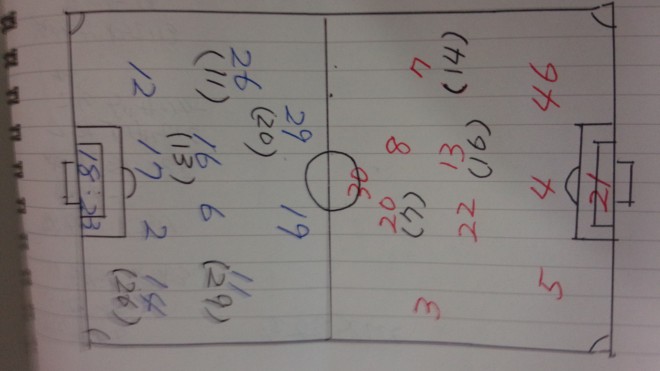 21
46 4 5
13 22
(14) (4)
7 8 20 3
29 19
(20)
26 16 6 11
(11) (13) (29)
12 17 2 14
(26)
18:23